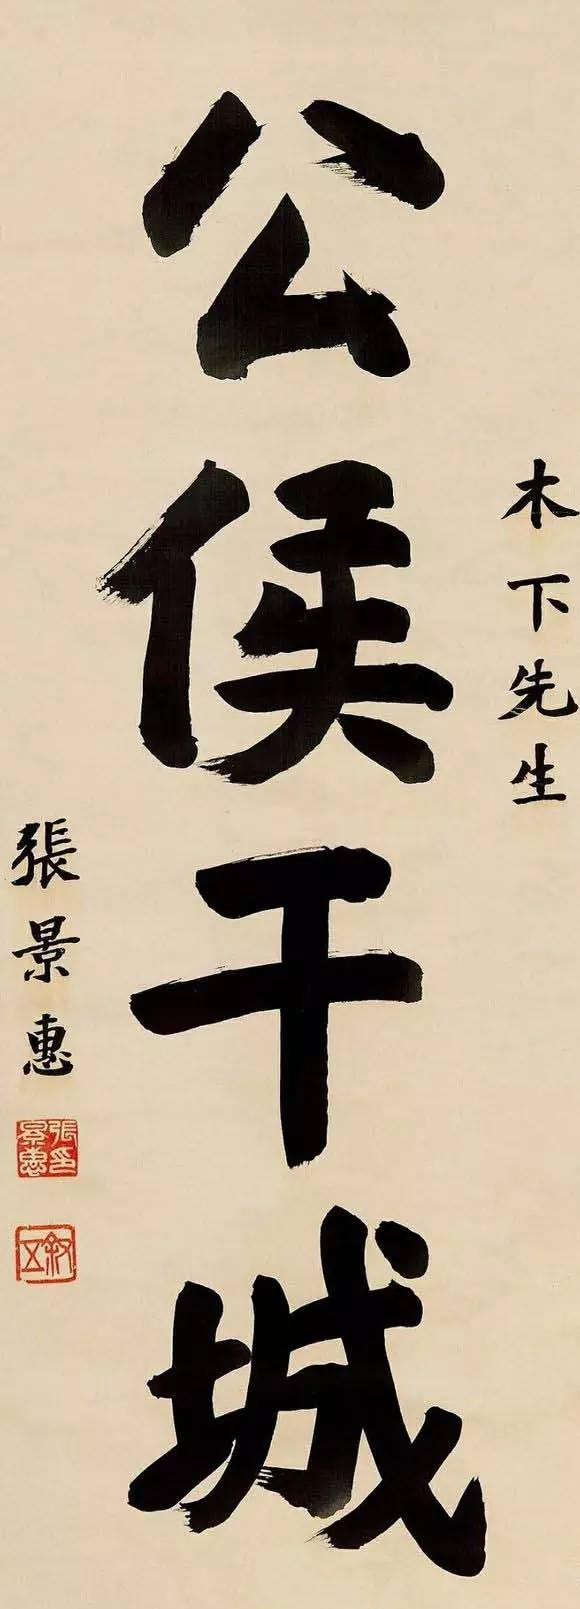 木下先生
公侯干城
張景惠
張景惠印
叙五